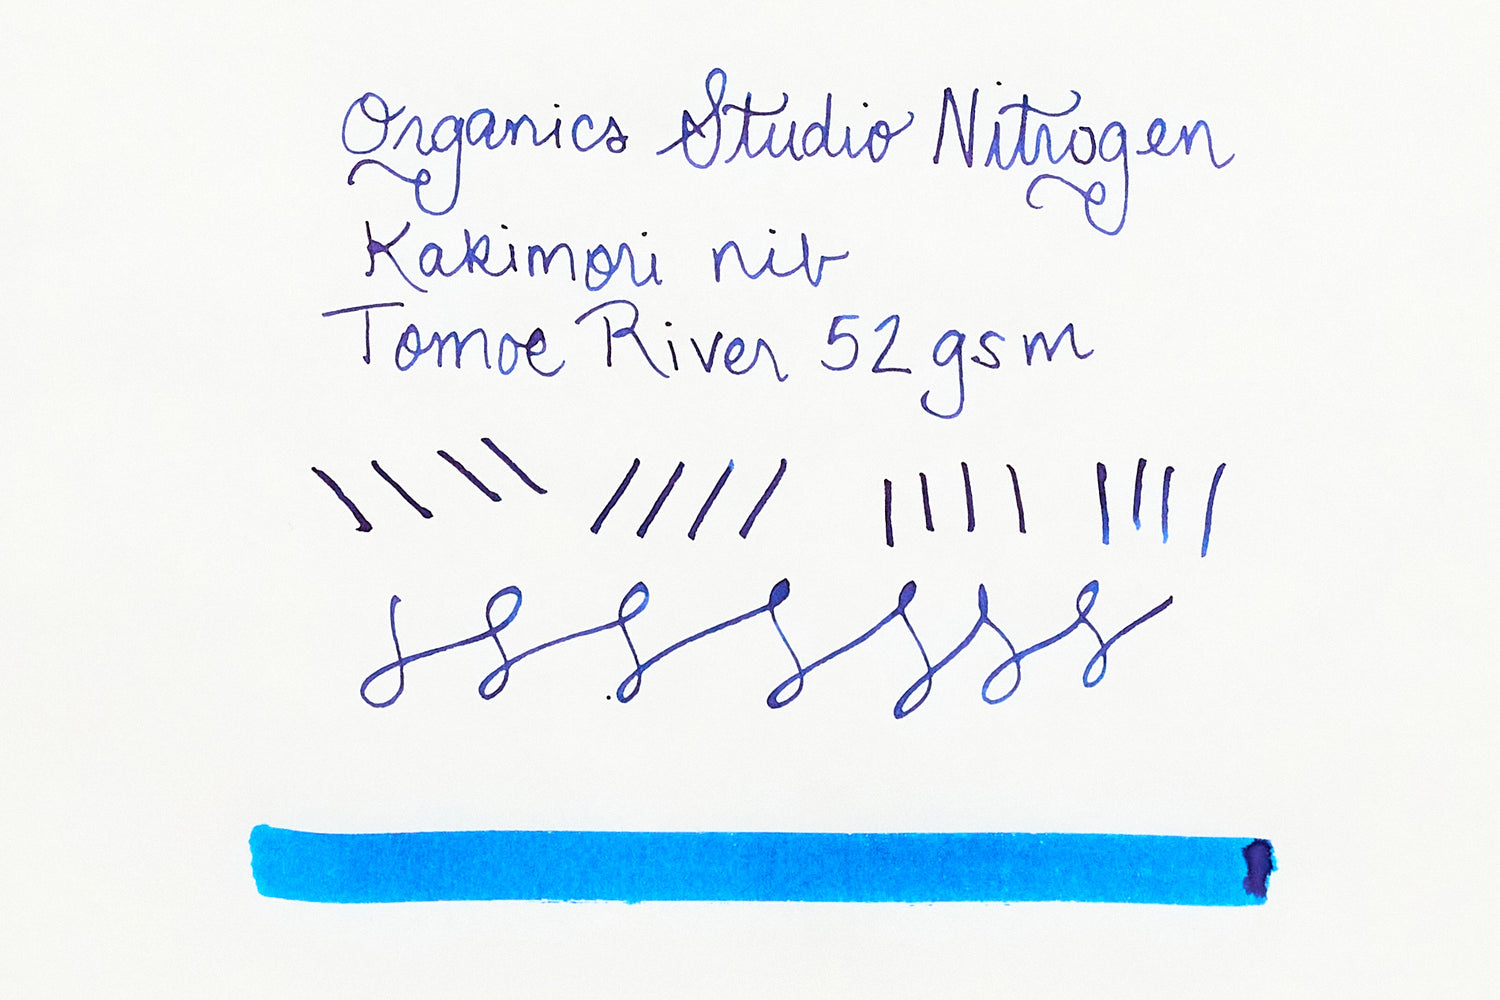 Organics Studio Nitrogen
Kakimori nib
Tomoe River 52 gsm